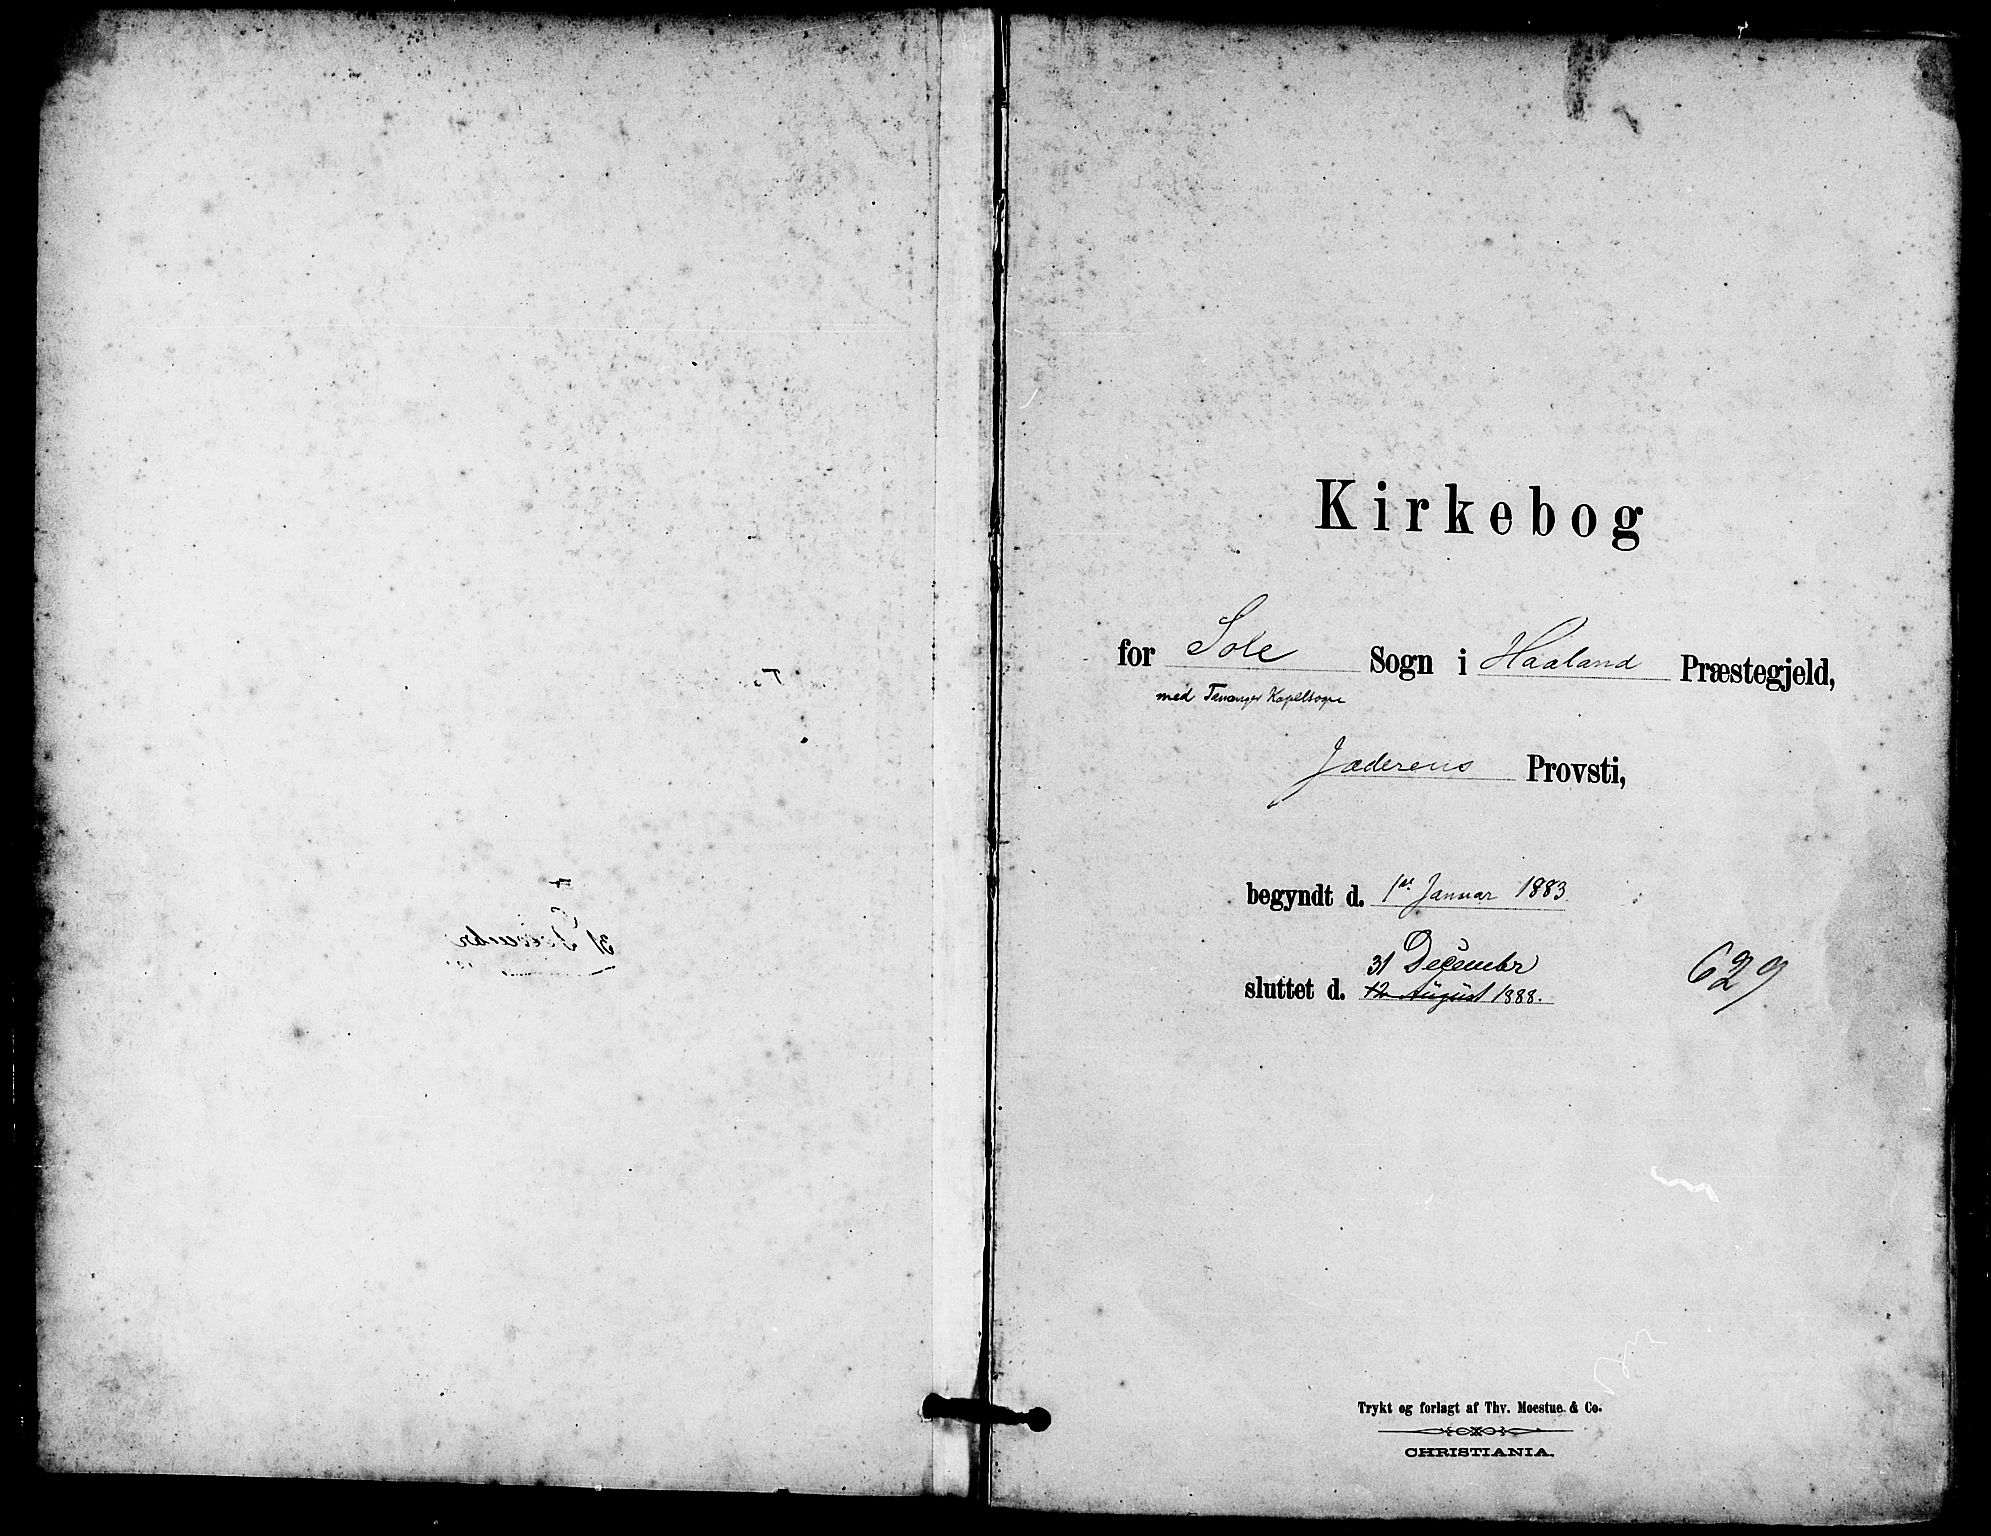 Kirkebog
for Sole Sogn i Haaland Præstegjeld,
med Tananger Kapelsogn
Jæderens Provsti,
begyndt d. 1ste Januar 1883.
31 December
sluttet d. 12 August 1888.
629
Trykt og forlagt af Thv. Moestue & Co.
CHRISTIANIA.